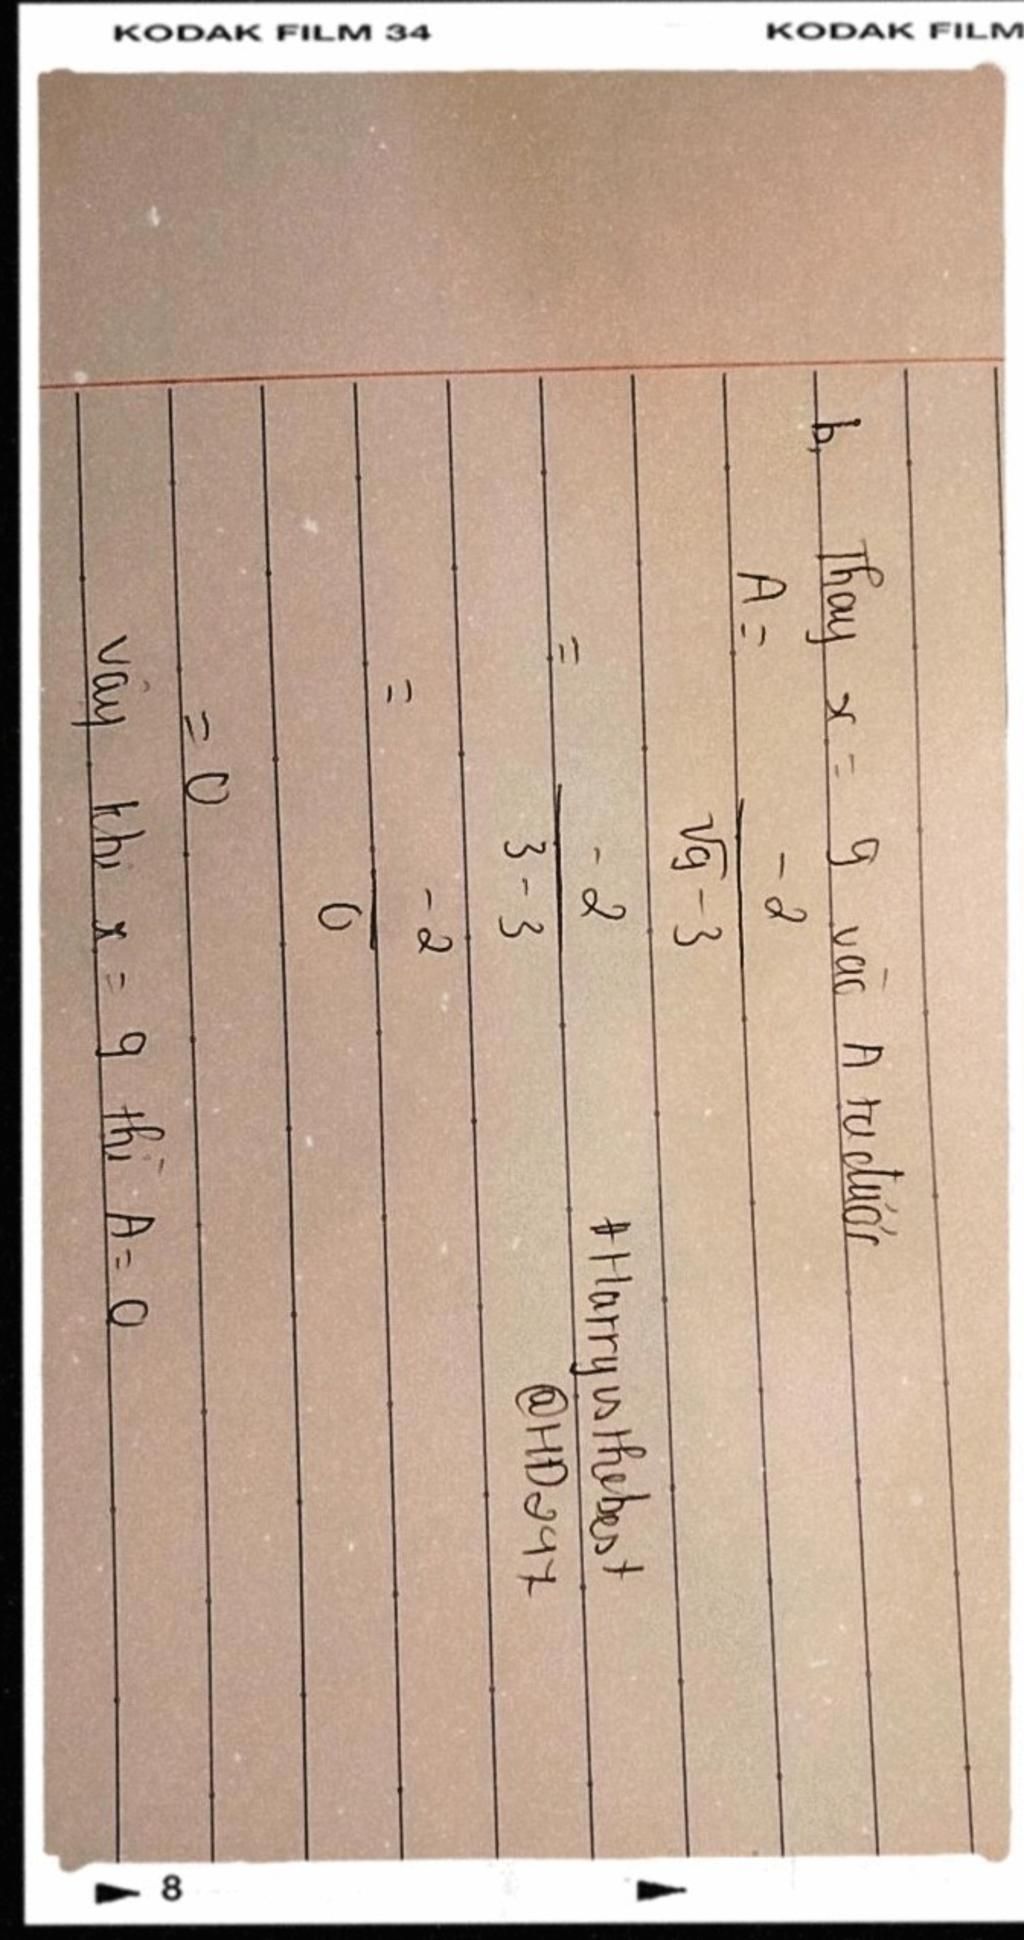 KODAK FILM 34
KODAK FILM
b, Thay x = 9 vào A ta được
A = -2 / √9 - 3
= -2 / 3 - 3
#Harryisthebest
@HD247
= -2 / 0
= 0
Vậy khi x = 9 thì A = 0
8